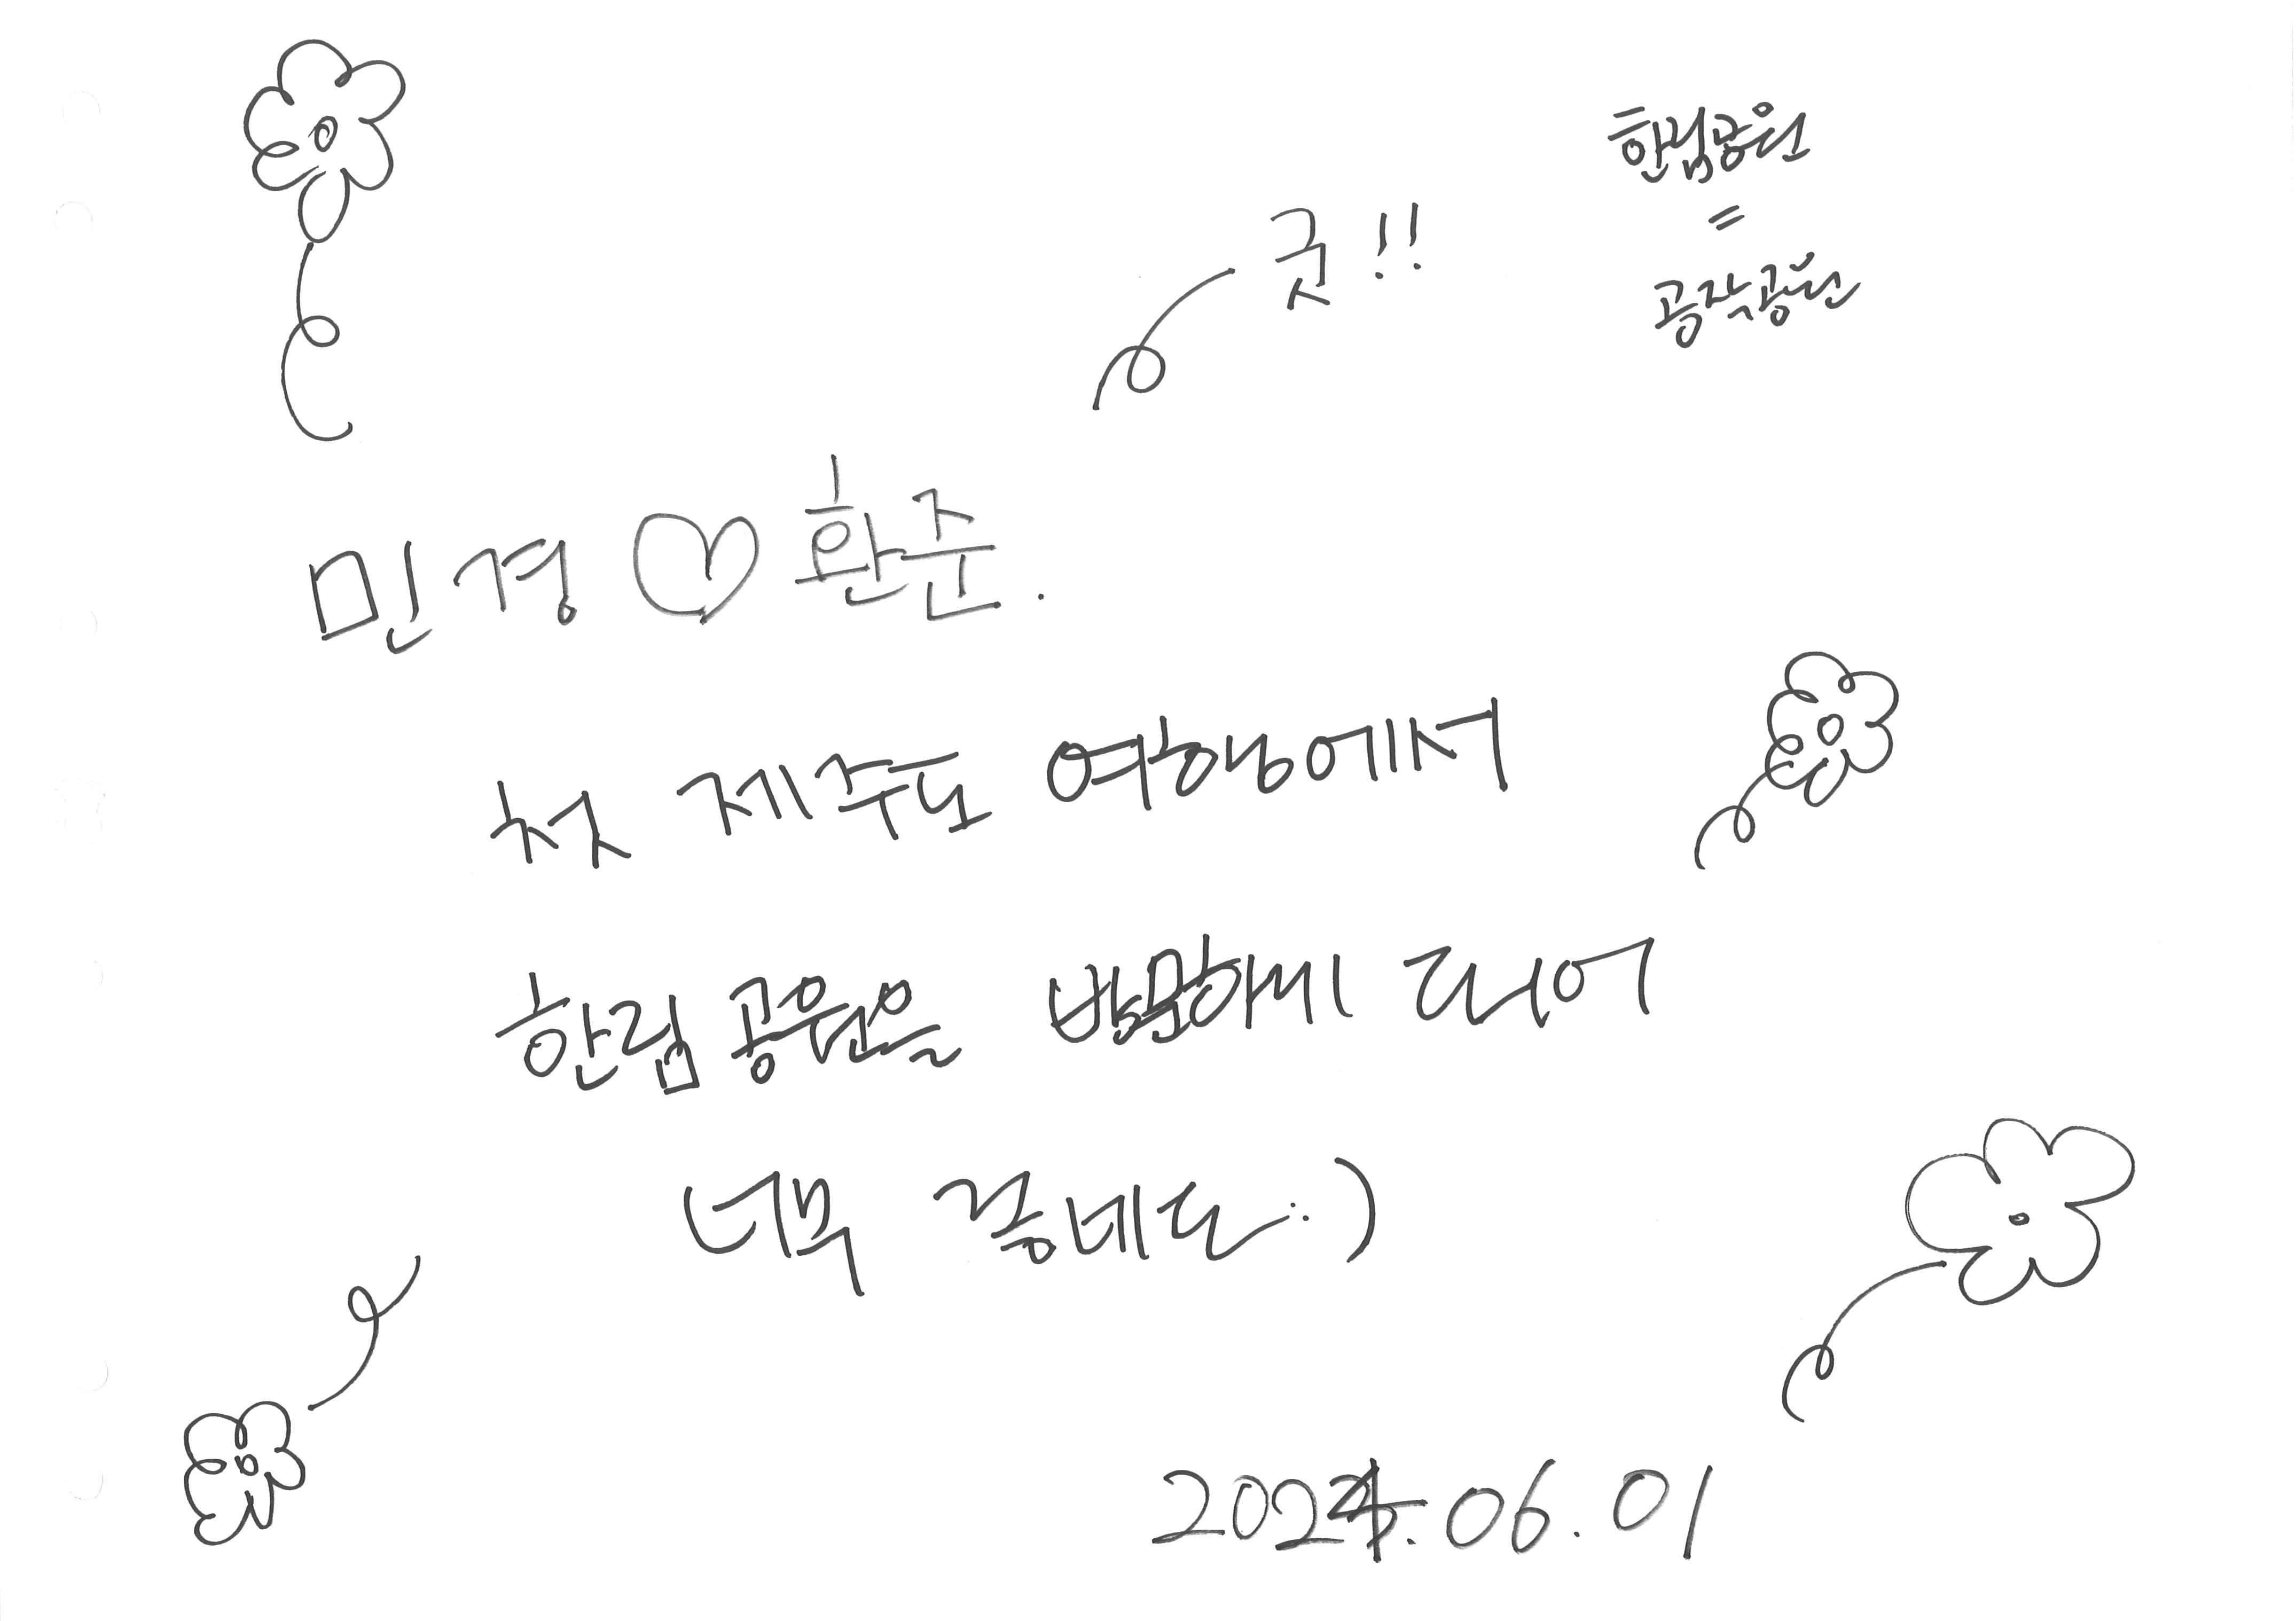 한림공원
=
공작공원
굿!!
민경♡환준.
첫 제주도 여행에서
한림공원을 방문하게 되어
넘 행복해요:)
2024.06.01